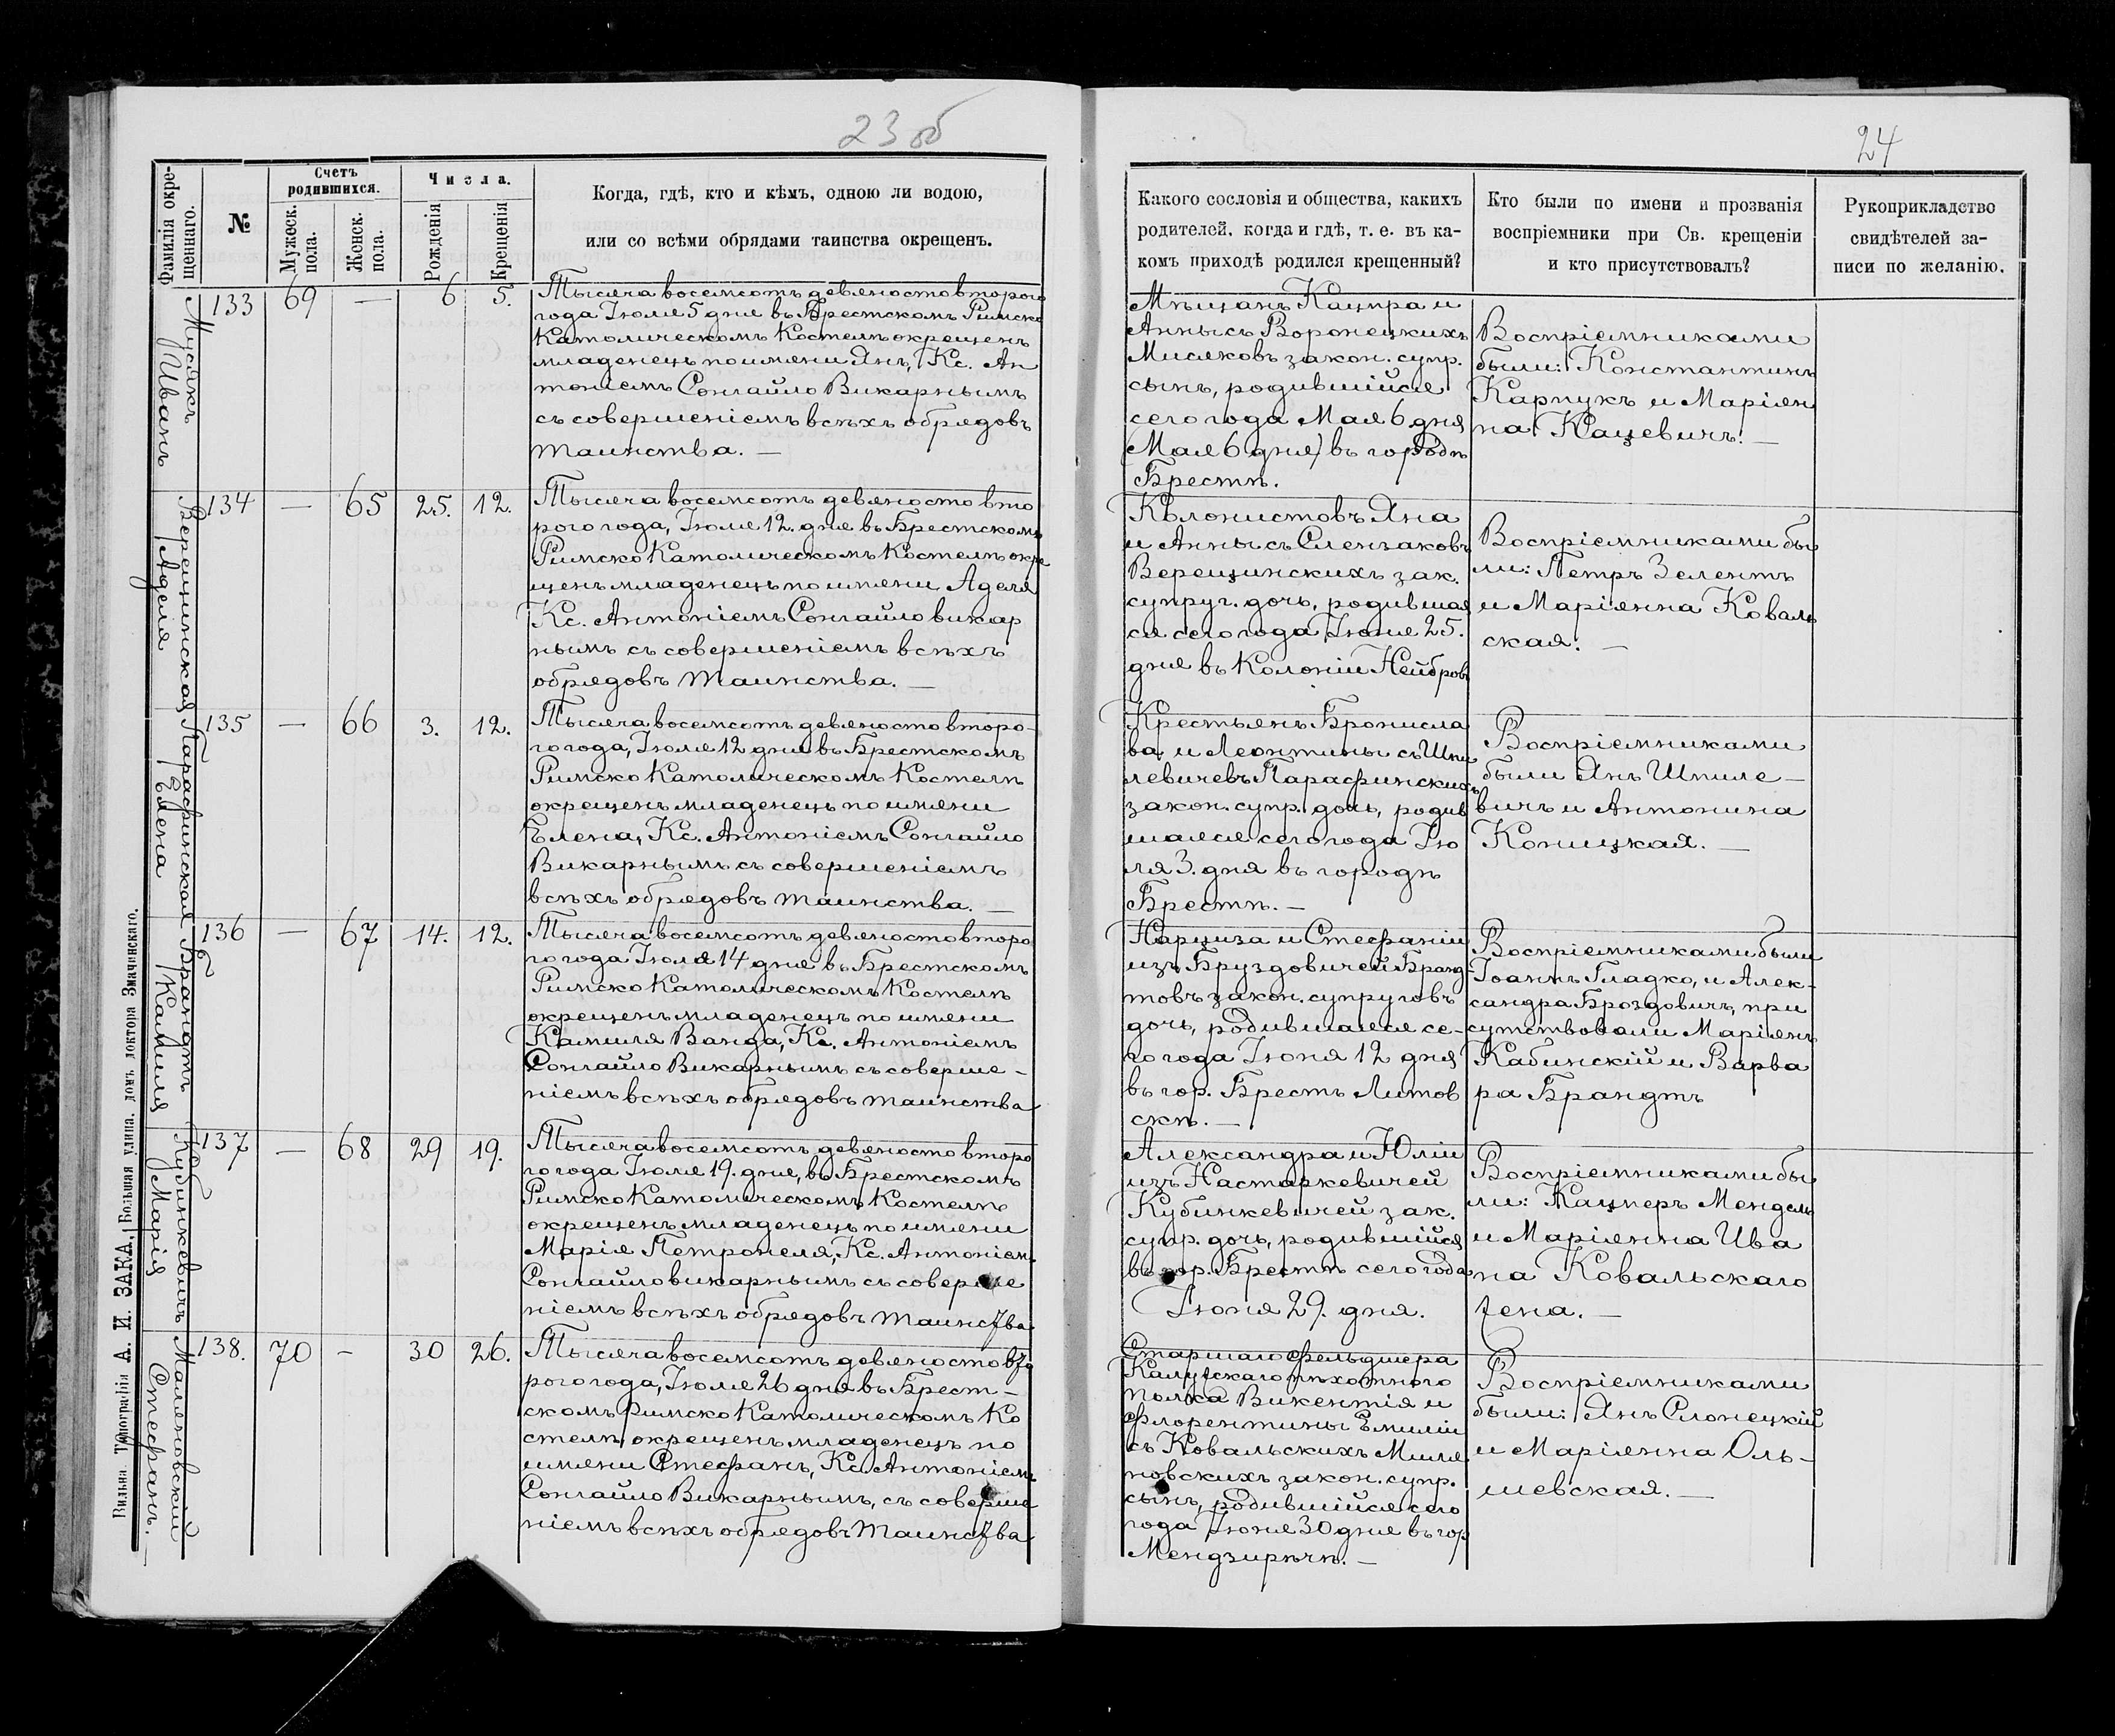 23 об
24
Фамилія окре-
щеннаго.
№
Счетъ
родившихся.
Мужеск.
пола.
Женск.
пола.
Числа.
Рожденія
Крещенія
Когда, гдѣ, кто и кѣмъ, одною ли водою,
или со всѣми обрядами таинства окрещенъ.
Какого сословія и общества, какихъ
родителей, когда и гдѣ, т. е. въ ка-
комъ приходѣ родился крещенный?
Кто были по имени и прозванія
воспріемники при Св. крещеніи
и кто присутствовалъ?
Рукоприкладство
свидѣтелей за-
писи по желанію.
Мисякъ
Иванъ
133 69 — 6 5.
Тысяча восемсотъ девяносто второго
года Іюля 5 дня въ Брестскомъ Римско
Католическомъ Костелѣ окрещенъ
младенецъ по имени Янъ, Кс. Ан
тоніемъ Сонгайло Викарнымъ
съ совершеніемъ всѣхъ обрядовъ
таинства. —
Мѣщанъ Кацпра и
Анны съ Воронецкихъ
Мисяковъ закон. супр.
сынъ, родившійся
сего года Мая 6 дня
(Мая 6 дня) въ городѣ
Брестѣ.
Воспріемниками
были: Константинъ
Карпукъ и Маріян
на Кацевичъ. —
Верещинская
Аделя
134 — 65 25. 12.
Тысяча восемсотъ девяносто вто
рого года, Іюля 12. дня въ Брестскомъ
Римско Католическомъ Костелѣ окре
щенъ младенецъ по имени Аделя
Кс. Антоніемъ Сонгайло викар
нымъ съ совершеніемъ всѣхъ
обрядовъ таинства. —
Колонистовъ Яна
и Анны съ Слензаковъ
Верещинскихъ зак.
супруг. дочь, родившая
ся сего года Іюня 25.
дня въ Колоніи Нейбровъ
Воспріемниками бы
ли: Петръ Зелентъ
и Маріянна Коваль
ская. —
Парафинская
Елена
135 — 66 3. 12.
Тысяча восемсотъ девяносто второ-
го года, Іюля 12 дня въ Брестскомъ
Римско Католическомъ Костелѣ
окрещенъ младенецъ по имени
Елена, Кс. Антоніемъ Сонгайло
Викарнымъ съ совершеніемъ
всѣхъ обрядовъ таинства. —
Крестьянъ Бронисла
ва и Леонтины съ Шпи
левичевъ Парафинскихъ
закон. супр. дочь, родив
шаяся сего года Ію
ля 3. дня въ городѣ
Брестѣ. —
Воспріемниками
были Янъ Шпиле—
вичъ и Антонина
Коницкая. —
Брандтъ
Камиля
136 — 67 14. 12.
Тысяча восемсотъ девяносто второ
го года Іюля 14 дня въ Брестскомъ
Римско Католическомъ Костелѣ
окрещенъ младенецъ по имени
Камиля Ванда, Кс. Антоніемъ
Сонгайло Викарнымъ съ соверше-
ніемъ всѣхъ обрядовъ таинства
Нарциза и Стефаніи
изъ Бруздовичей Бранд
товъ закон. супруговъ
дочь, родившаяся се-
го года Іюня 12 дня
въ гор. Брестъ Литов
скѣ. —
Воспріемниками были
Іоаннъ Гладко, и Алек-
сандра Броздовичъ, при
сутствовали Маріянъ
Кабинскій и Варва
ра Брандтъ
Кубинкевичъ
Марія
137 — 68 29 19.
Тысяча восемсотъ девяносто второ
го года Іюля 19. дня, въ Брестскомъ
Римско Католическомъ Костелѣ
окрещенъ младенецъ по имени
Марія Петронеля, Кс. Антоніемъ
Сонгайло викарнымъ съ соверше
ніемъ всѣхъ обрядовъ таинства
Александра и Юліи
изъ Настаркевичей
Кубинкевичей зак.
супр. дочь, родившійся
въ гор. Брестѣ сего года
Іюня 29. дня.
Воспріемниками бы
ли: Кацперъ Мендель
и Маріянна Ива
на Ковальскаго
жена. —
Маляновскій
Стефанъ.
138. 70 - 30 26.
Тысяча восемсотъ девяносто вто
рого года, Іюля 26 дня въ Брест-
скомъ Римско Католическомъ Ко
стелѣ, окрещенъ младенецъ по
имени Стефанъ, Кс. Антоніемъ
Сонгайло Викарнымъ, съ соверше
ніемъ всѣхъ обрядовъ таинства
Старшаго фельдшера
Калужскаго пѣхотнаго
полка Викентія и
Флорентины Емиліи
съ Ковальскихъ Миля
новскихъ закон. супр.
сынъ, родившійся сего
года Іюня 30 дня въ гор
Мендзирѣчѣ. —
Воспріемниками
были: Янъ Слонецкій
и Маріянна Оль-
шевская. —
Вильна Типографія А. И. ЗАКА, Большая улица, домъ доктора Змачинскаго.